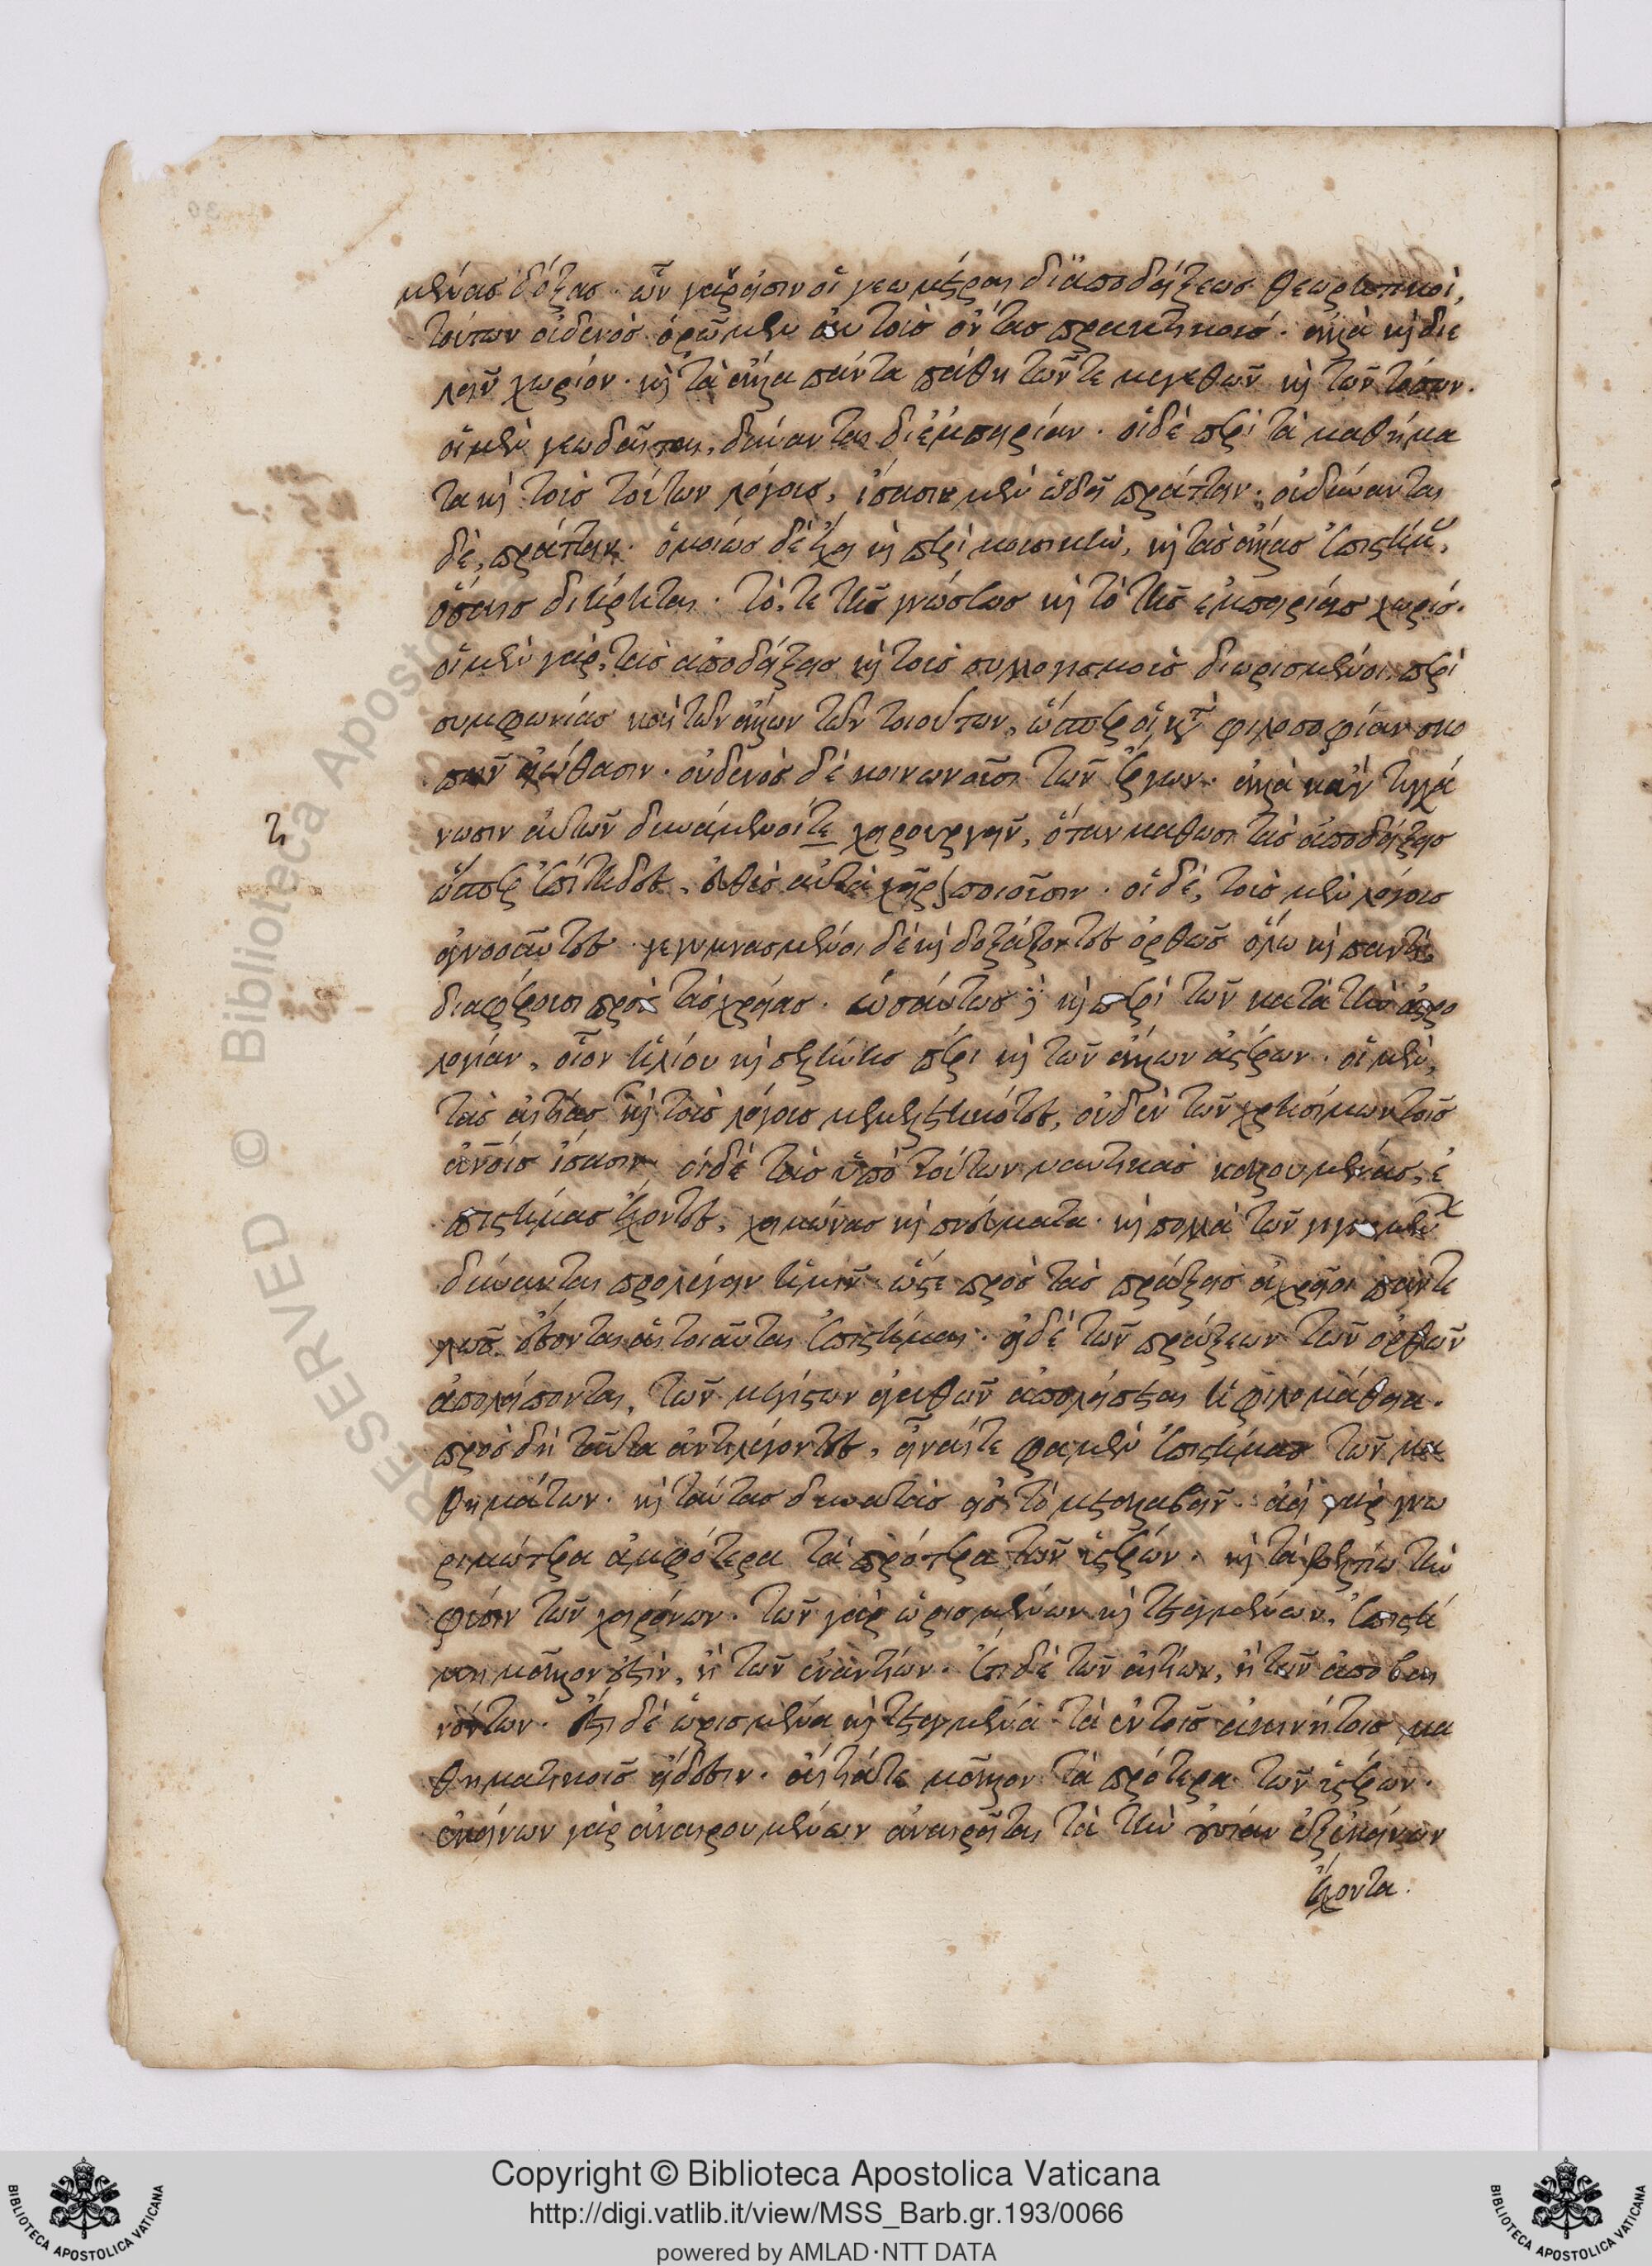 μένας δόξας· ὧν γάρ εἰσιν οἱ γεωμέτραι δι' ἀποδείξεως θεωρητικοί,
τούτων οὐδενὸς ὁρῶμεν αὐτοὺς ὄντας πρακτικούς· ἀλλὰ καὶ διε
λεῖν χωρίον· καὶ τὰ ἄλλα πάντα πάθη τῶν τε μεγεθῶν καὶ τῶν τόπων.
οἱ μὲν γεωδαῖται, δύνανται δι' ἐμπειρίαν· οἱ δὲ περὶ τὰ μαθήμα
τα καὶ τοὺς τούτων λόγους, ἴσασιν μὲν ὡς δεῖ πράττειν· οὐ δύνανται
δὲ, πράττειν· ὁμοίως δὲ ἔχει καὶ περὶ μουσικὴν, καὶ τὰς ἄλλας ἐπιστήμ,
ὅσαις διήρηται· τό, τε τῆς γνώσεως καὶ τὸ τῆς ἐμπειρίας χωρίς·
οἱ μὲν γὰρ, τὰς ἀποδείξεις καὶ τοὺς συλλογισμοὺς διωρισμένοι, περὶ
συμφωνίας καὶ τῶν ἄλλων τῶν τοιούτων, ὥσπερ οἱ κατὰ φιλοσοφίαν σκο
πεῖν εἰώθασιν· οὐδενὸς δὲ κοινωνοῦσι τῶν ἔργων· ἀλλὰ κἂν τυγχά
νωσιν αὐτῶν δυνάμενοί τε χειρουργεῖν, ὅταν μάθωσι τὰς ἀποδείξεις
ὥσπερ ἐπίτηδες, εὐθὺς αὐτὰ χεῖρον ποιοῦσιν· οἱ δὲ, τοὺς μὲν λόγους
ἀγνοοῦντες· γεγυμνασμένοι δὲ καὶ δοξάζοντες ὀρθῶς ὅλῳ καὶ παντὶ,
διαφέρουσι πρὸς τὰς χρείας· ὡσαύτως δὲ καὶ περὶ τῶν κατὰ τὴν ἀστρο
λογίαν, οἷον ἡλίου καὶ σελήνης πέρι καὶ τῶν ἄλλων ἄστρων· οἱ μὲν,
τὰς αἰτίας καὶ τοὺς λόγους μεμελετηκότες, οὐδὲν τῶν χρησίμων τοῖς
ἀνοις ἴσασιν· οἱ δὲ τὰς ὑπὸ τούτων ναυτικὰς καλουμένας, ἐ
πιστήμας ἔχοντες, χειμῶνας καὶ πνεύματα· καὶ πολλὰ τῶν γιγνομένων
δύνανται προλέγειν ἡμῖν· ὥστε πρὸς τὰς πράξεις ἀχρεῖοι παντε
λῶς ἔσονται αἱ τοιαῦται ἐπιστήμαι· εἰ δὲ τῶν πράξεων τῶν ὀρθῶν
ἀπολείπονται, τῶν μεγίστων ἀγαθῶν ἀπολείπεται ἡ φιλομάθεια.
πρὸς δὴ ταῦτα ἀντιλέγοντες, εἶναί τε φαμὲν ἐπιστήμας τῶν μα
θημάτων· καὶ ταύτας δυνατὰς εἰς τὸ μεταλαβεῖν· ἀεὶ γὰρ γνω
ριμώτερα ἀμφότερα τὰ πρότερα τῶν ὑστέρων· καὶ τὰ βελτίω τὴν
φύσιν τῶν χειρόνων· τῶν γὰρ ὡρισμένων καὶ τεταγμένων, ἐπιστή
μη μᾶλλόν ἐστιν, ἢ τῶν ἐναντίων· ἔτι δὲ τῶν αἰτίων, ἢ τῶν ἀποβαι
νόντων· ἔστι δὲ ὡρισμένα καὶ τεταγμένα τὰ ἐν τοῖς ἀκινήτοις μα
θηματικοῖς εἴδεσιν· αἴτιά τε μᾶλλον τὰ πρότερα τῶν ὑστέρων·
ἐκείνων γὰρ ἀναιρουμένων ἀναιρεῖται τὰ τὴν οὐσίαν ἐξ ἐκείνων
ἔχοντα.